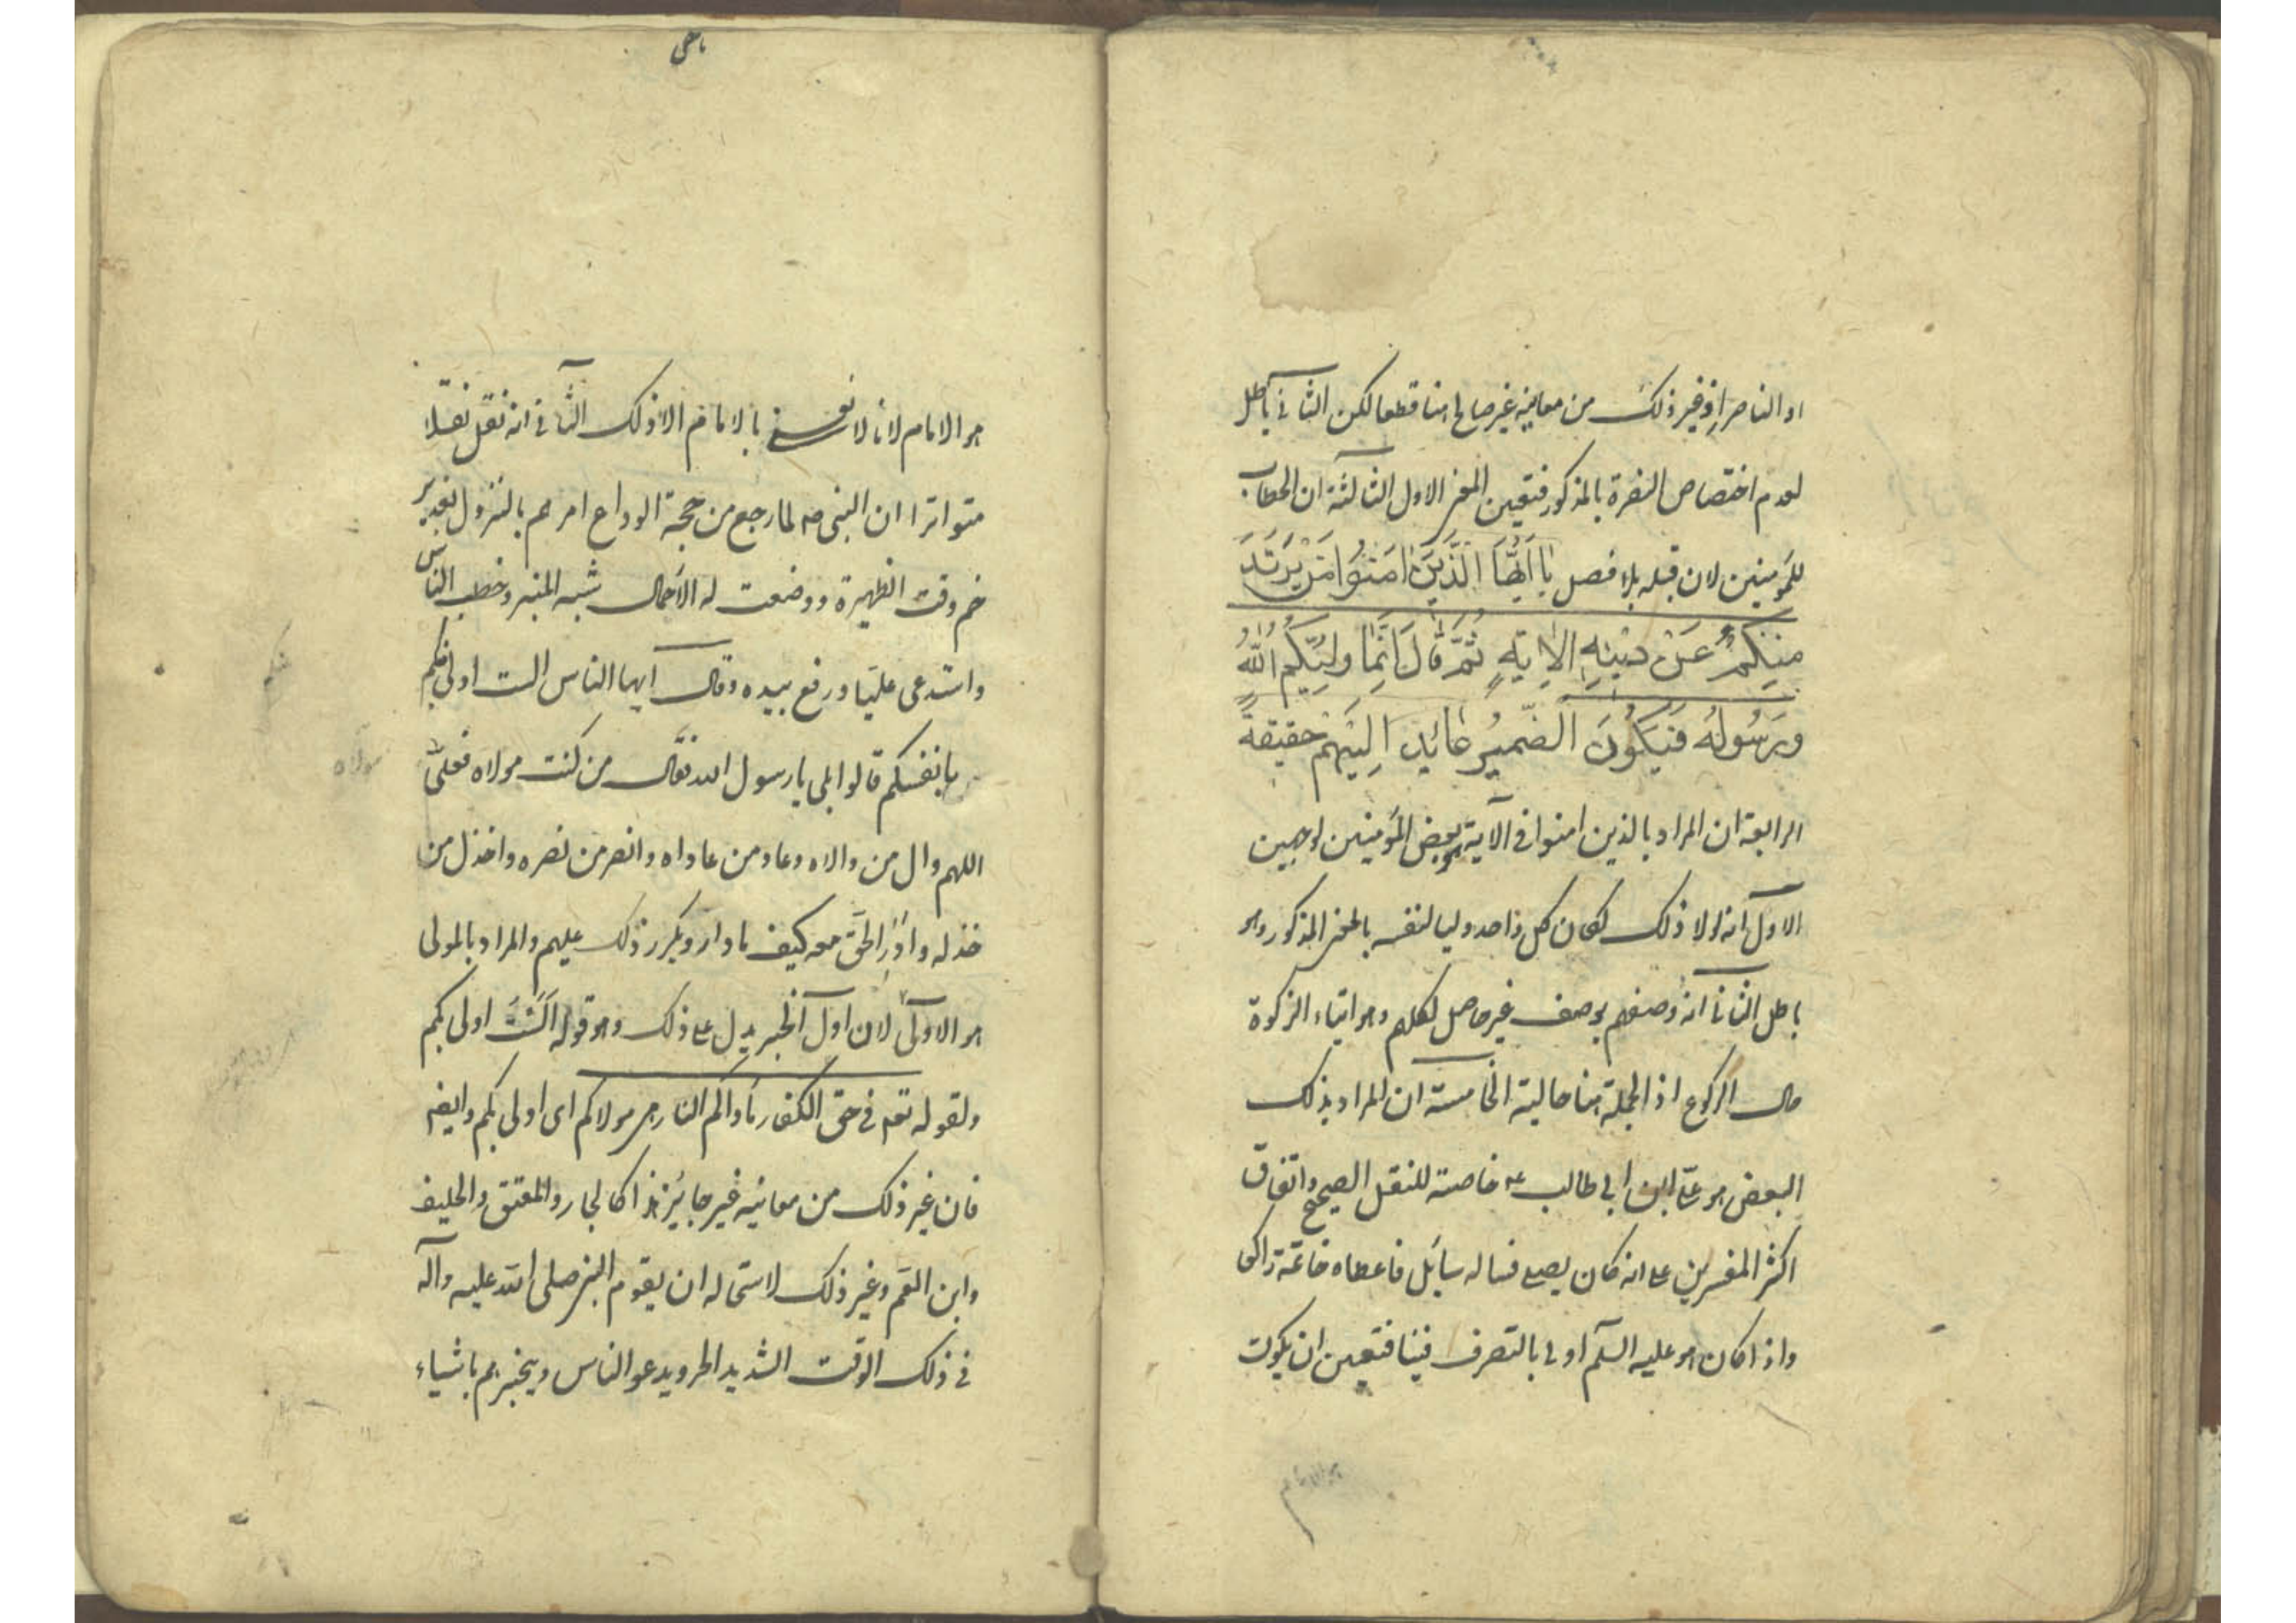 او الناصر اذ غير ذلك من معانيه غير صالح هنا قطعا لكن الثاني باطل
لعدم اختصاص النصرة بالمذكور فتعين المعنى الاول الثالثة ان الخطاب
للمؤمنين لان قبله بلا فصل يا ايها الذين امنوا من يرتد
منكم عن دينه الاية ثم قال انما وليكم الله
ورسوله فيكون الضمير عائد اليهم حقيقة
الرابعة ان المراد بالذين امنوا في الآية بعض المؤمنين لوجهين
الاول انه لولا ذلك لكان كل واحد وليا لنفسه بالمعنى المذكور وهو
باطل الثانى انه وصفهم بوصف غير حاصل لكلهم وهو ايتاء الزكوة
حال الركوع اذ الجملة هنا حالية الخامسة ان المراد بذلك
البعض هو علي ابن ابي طالب ع خاصة للنقل الصحيح واتفاق
اكثر المفسرين على انه كان يصلي فساله سائل فاعطاه خاتمه راكعا
واذا كان هو عليه السلم اولى بالتصرف فينا فتعين ان يكون
هو الامام لانا لا نعني بالامام الا ذلك الثاني انه نقل نقلا
متواترا ان النبي ص لما رجع من حجة الوداع امرهم بالنزول بغدير
خم وقت الظهيرة ووضعت له الاحمال شبه المنبر وخطب الناس
واستدعى عليا ورفع بيده وقال ايها الناس الست اولى منكم
بانفسكم قالوا بلى يا رسول الله فقال من كنت مولاه فعلي
مولاه
اللهم وال من والاه وعاد من عاداه وانصر من نصره واخذل من
خذله وادر الحق معه كيف ما دار ويكرر ذلك عليهم والمراد بالمولى
هو الاولى لان اول الخبر يدل على ذلك وهو قوله الست اولى بكم
ولقوله تعم في حق الكفار مأواكم النار هي مولاكم اى اولى بكم وايضه
فان غير ذلك من معانيه غير جايز هذا كالجار والمعتق والحليف
وابن العم وغير ذلك لاستحاله ان يقوم النبي صلى الله عليه وآله
في ذلك الوقت الشديد الحر ويدعو الناس ويخبرهم باشياء